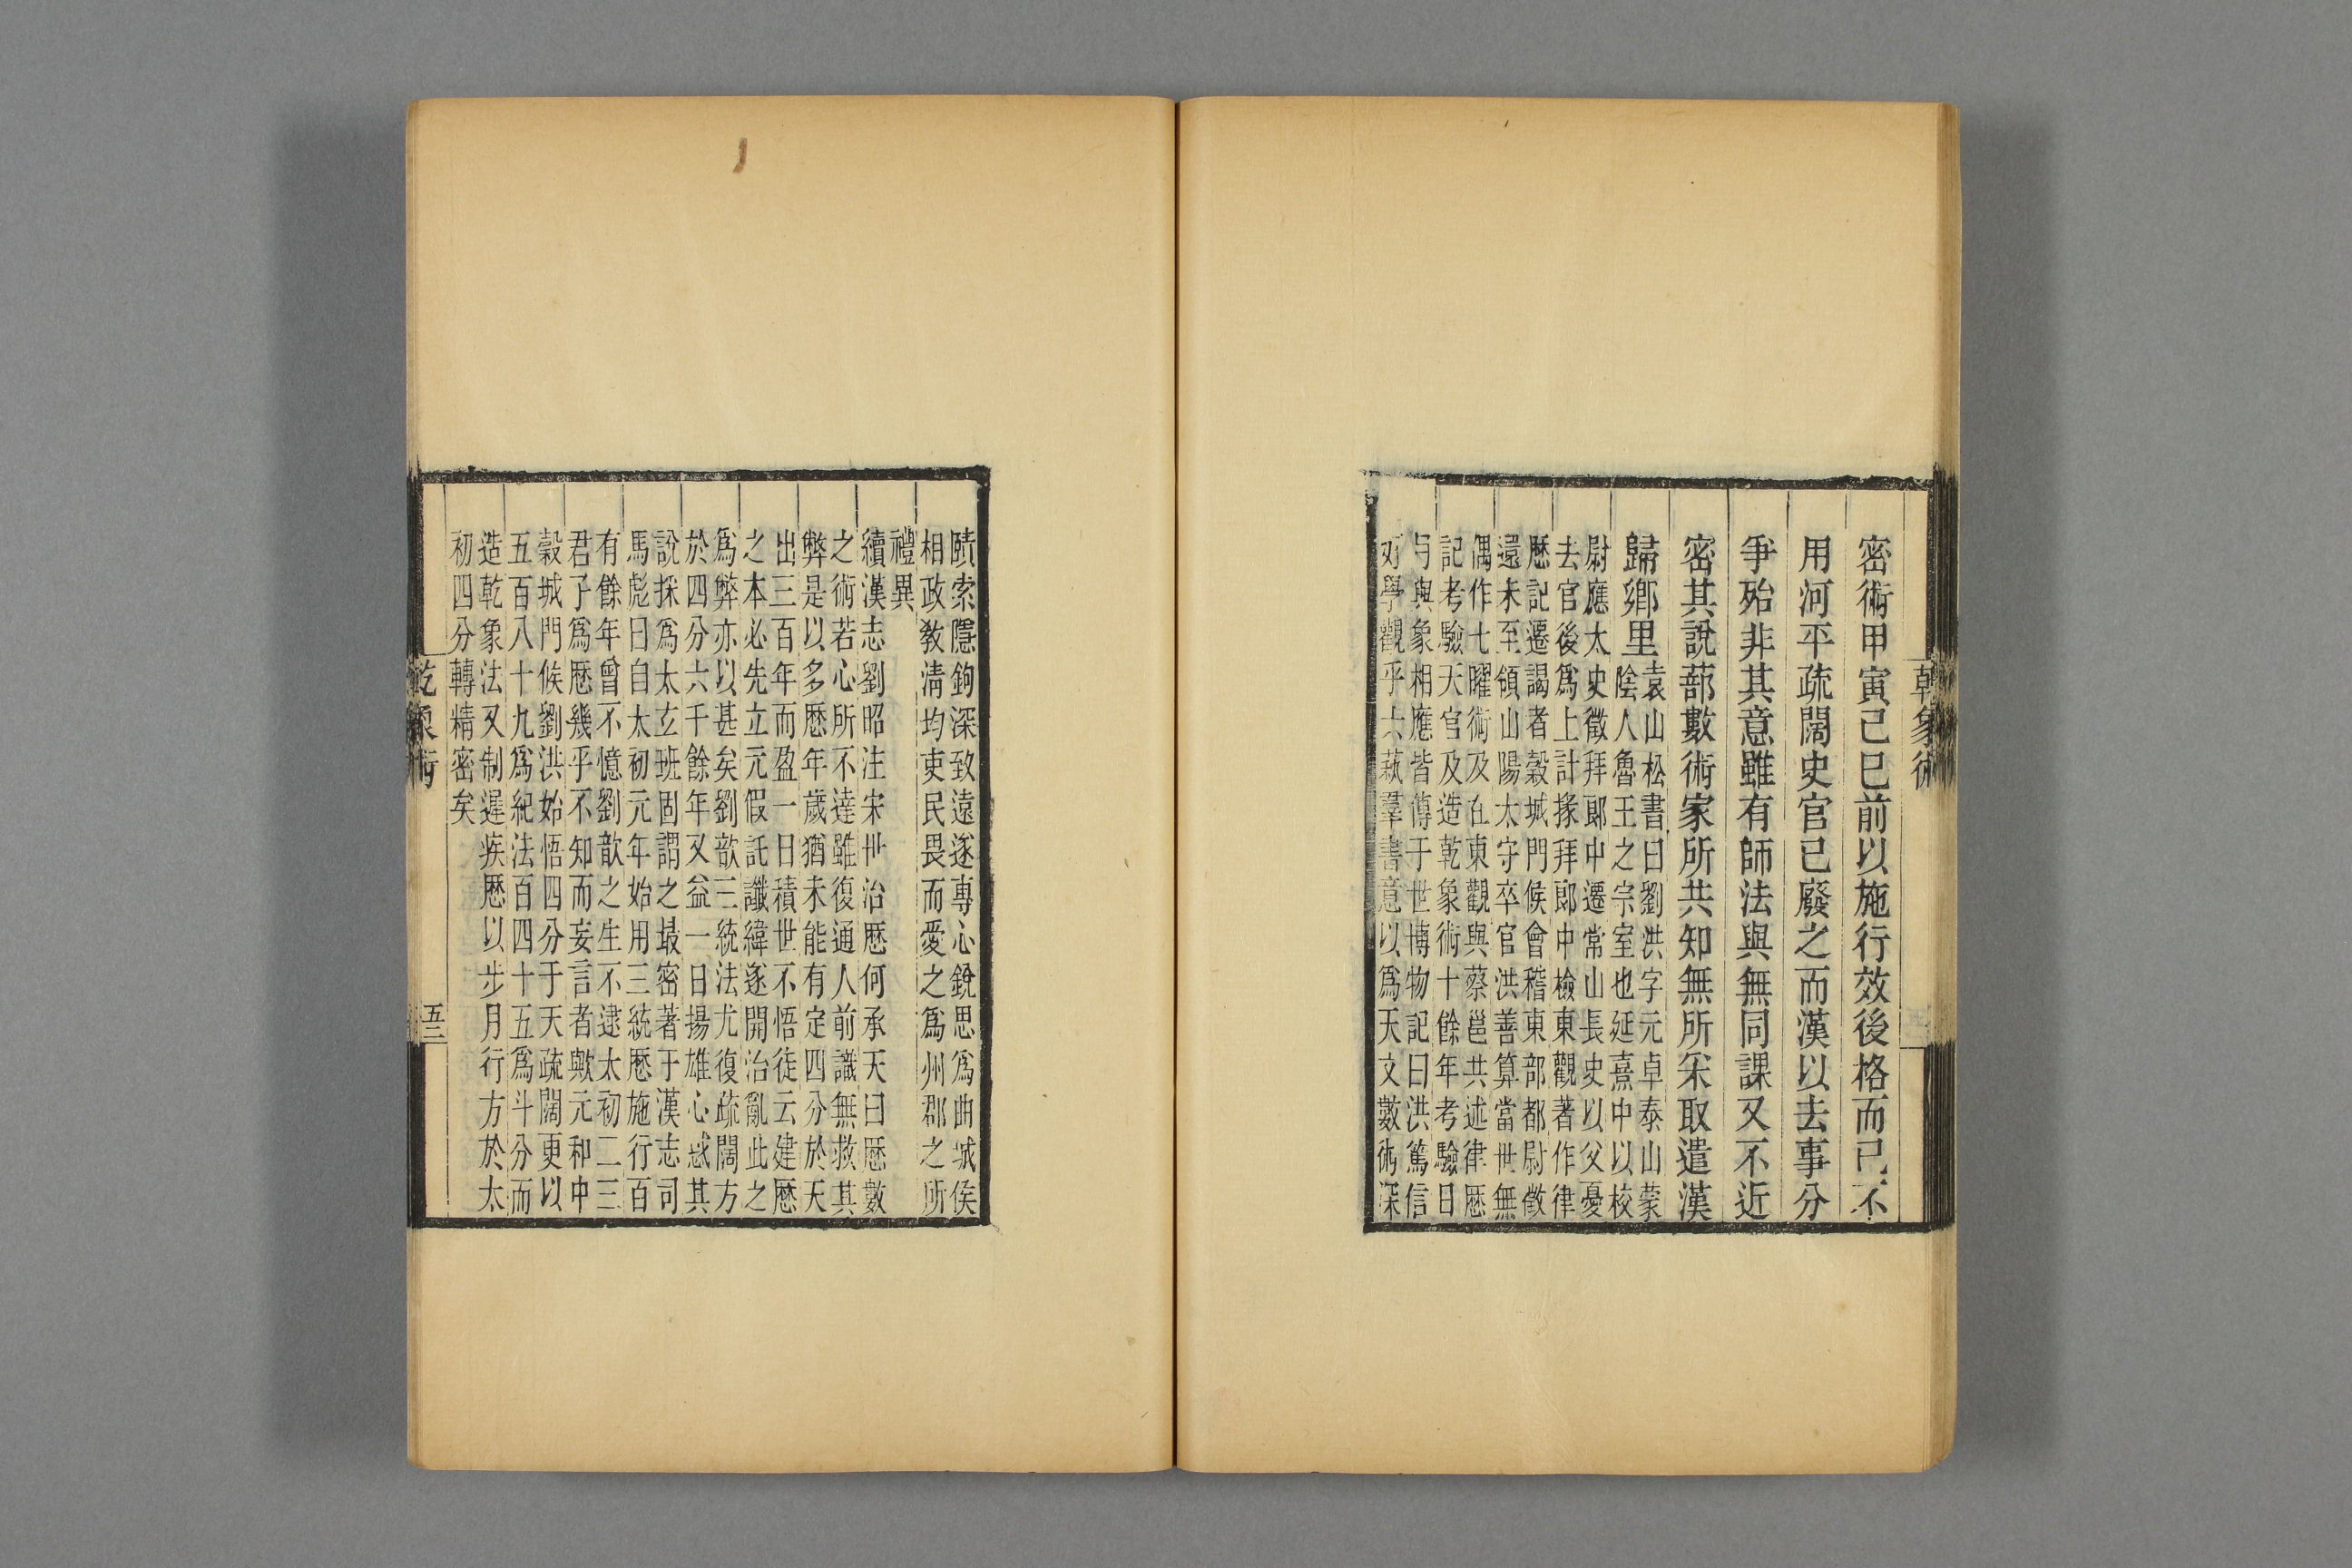 乾象術
密術甲寅己巳前以施行效後格而已不
用河平疏闊史官已廢之而漢以去事分
爭殆非其意雖有師法與無同課又不近
密其說蔀數術家所共知無所采取遣漢
歸鄉里
袁山松書曰劉洪字元卓泰山蒙
陰人魯王之宗室也延熹中以校
尉應太史徵拜郎中遷常山長史以父憂
去官後爲上計掾拜郎中檢東觀著作律
歷記遷謁者穀城門候會稽東部都尉徵
還未至領山陽太守卒官洪善算當世無
偶作七曜術及在東觀與蔡邕共述律歷
記考驗天官及造乾象術十餘年考驗日
月與象相應皆傳于世博物記曰洪篤信
好學觀乎六蓺羣書意以爲天文數術深
賾索隱鉤深致遠遂專心銳思爲曲城侯
相政教清均吏民畏而愛之爲州郡之所
禮異
續漢志劉昭注宋世治歷何承天曰歷數
之術若心所不達雖復通人前識無救其
弊是以多歷年歲猶未能有定四分於天
出三百年而盈一日積世不悟徒云建歷
之本必先立元假託讖緯遂開治亂此之
爲弊亦以甚矣劉歆三統法尤復疏闊方
於四分六千餘年又益一日揚雄心惑其
說採爲太玄班固謂之最密著于漢志司
馬彪曰自太初元年始用三統歷施行百
有餘年曾不憶劉歆之生不逮太初二三
君子爲歷幾乎不知而妄言者歟元和中
穀城門候劉洪始悟四分于天疏闊更以
五百八十九爲紀法百四十五爲斗分而
造乾象法又制遲疾歷以步月行方於太
初四分轉精密矣
乾象術
五三